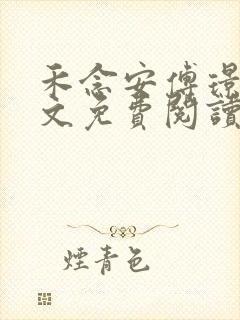 禾念安傅璟
文免費閱讀
煙青色